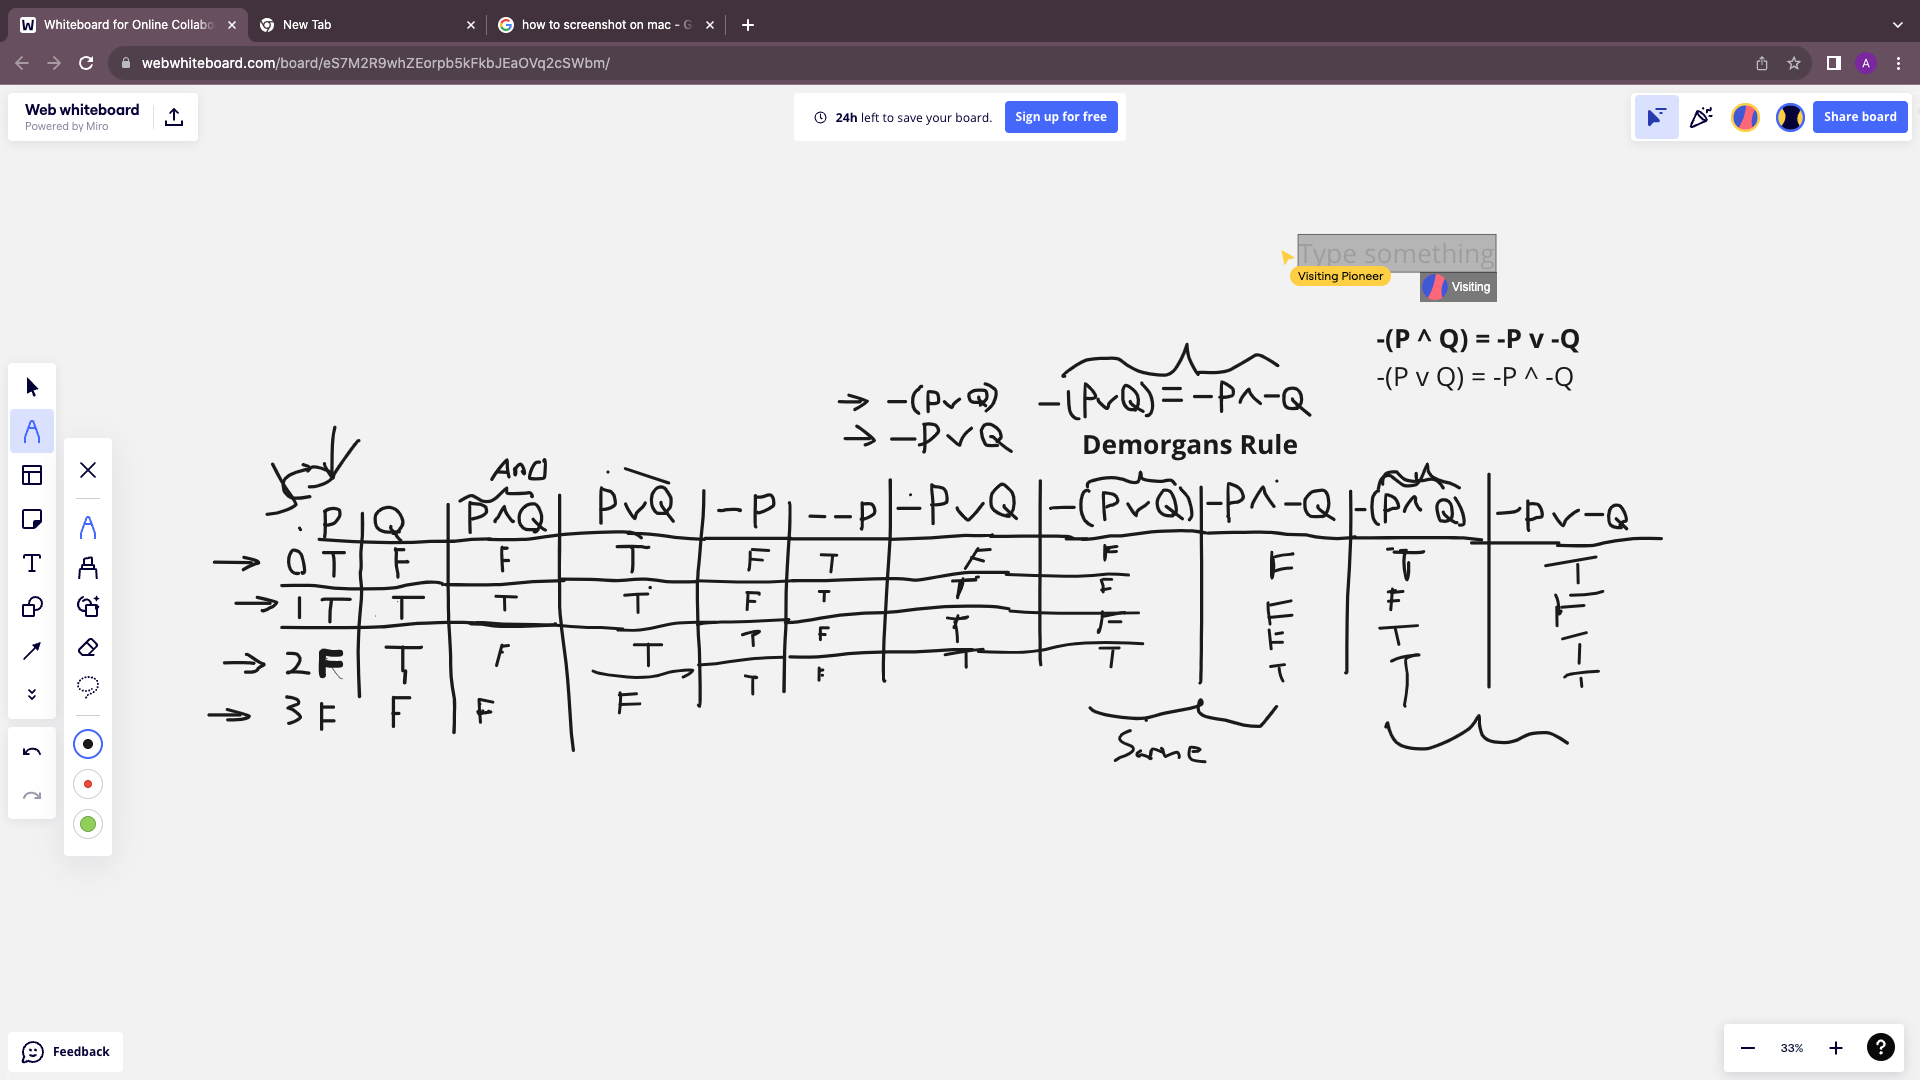 Whiteboard for Online Collabo
New Tab
how to screenshot on mac - G
webwhiteboard.com/board/eS7M2R9whZEorpb5kFkbJEaOVq2cSWbm/
A
Web whiteboard
Powered by Miro
24h left to save your board.
Sign up for free
Share board
Type something
Visiting Pioneer
Visiting
-(P ^ Q) = -P v -Q
-(P v Q) = -P ^ -Q
→ -(P∨Q) -(P∨Q) = -P∧-Q
→ -P∨Q
Demorgans Rule
And
P Q P∧Q P∨Q -P --P -P∨Q -(P∨Q) -P∧-Q -(P∧Q) -P∨-Q
→ 0 T F F T F T F F F T T
→ 1 T T T T F T T F F F F
→ 2 F T F T T F T F F T T
→ 3 F F F F T F T T T T T
Same
Feedback
33%
?